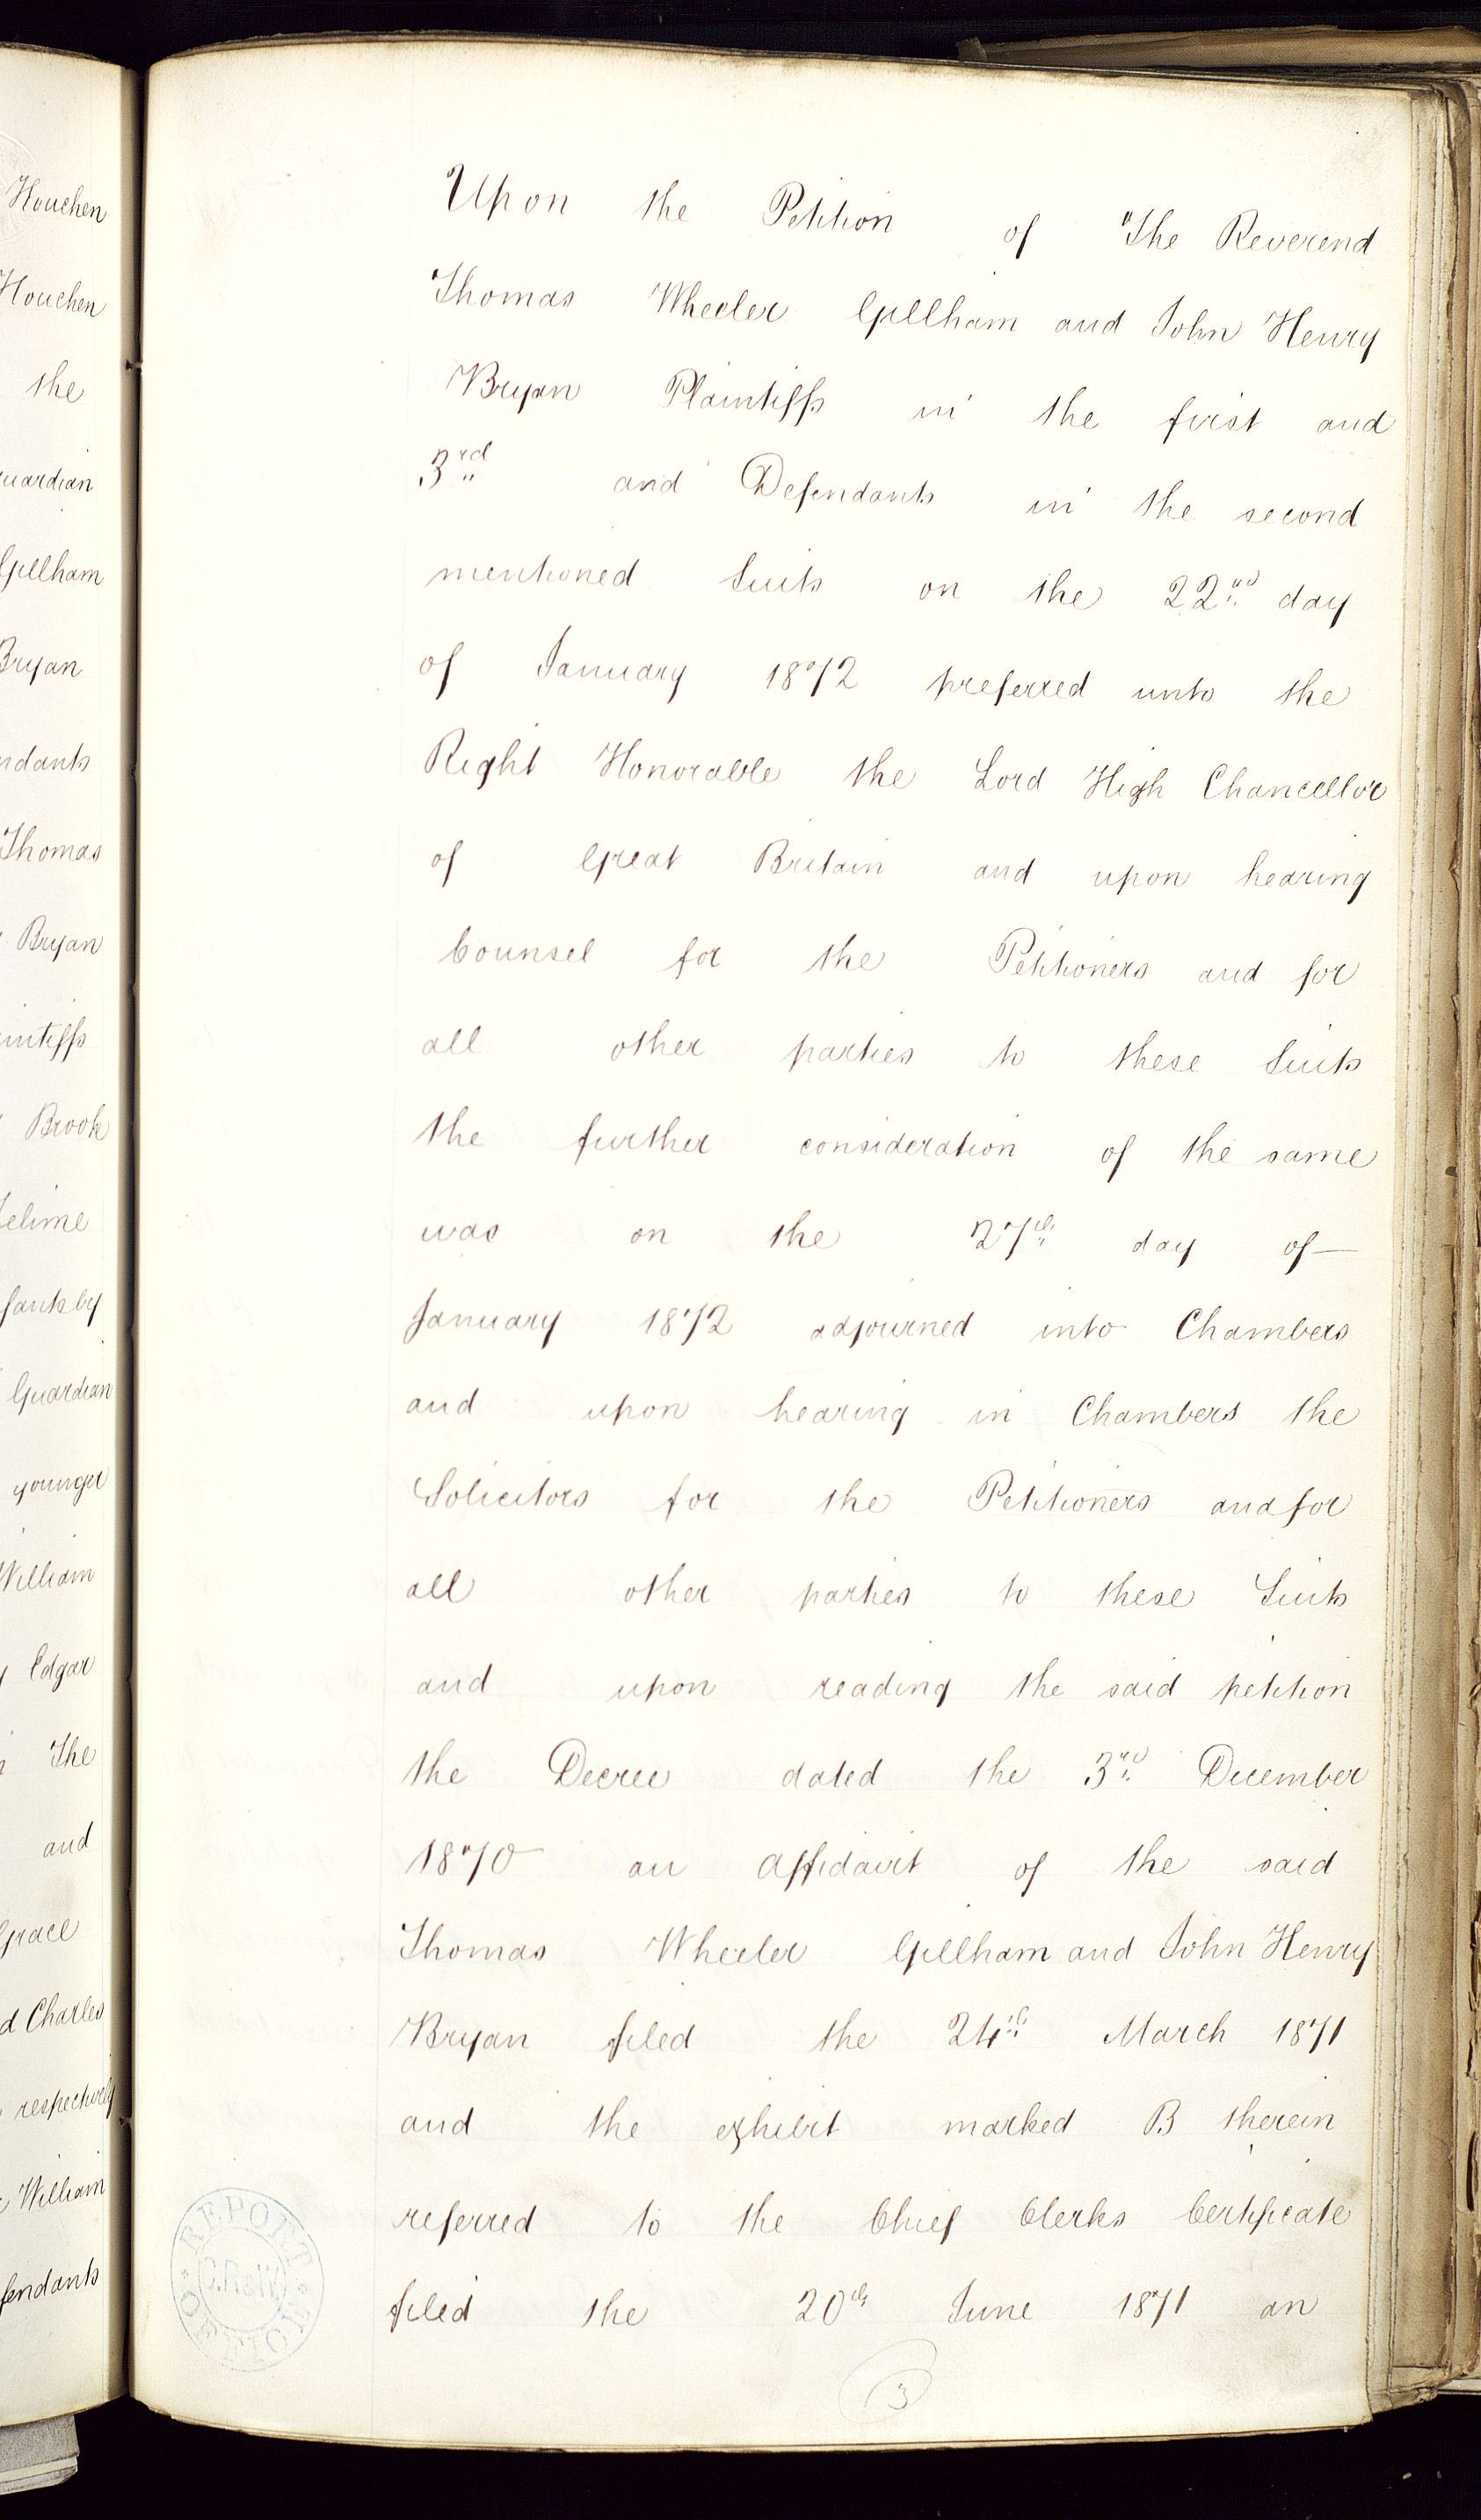 Houchen
Houchen
the
uardian
Gillham
Bryan
ndants
Thomas
Bryan
intiffs
Brook
elime
fants by
Guardian
younger
William
Edgar
The
and
Grace
d Charles
respectively
William
fendants
Upon the Petition of The Reverend
Thomas Wheeler Gillham and John Henry
Bryan Plaintiffs in the first and
3rd and Defendants in the second
mentioned Suits on the 22nd day
of January 1872 preferred unto the
Right Honorable the Lord High Chancellor
of Great Britain and upon hearing
Counsel for the Petitioners and for
all other parties to these Suits
the further consideration of the same
was on the 27th day of
January 1872 adjourned into Chambers
and upon hearing in Chambers the
Solicitors for the Petitioners and for
all other parties to these Suits
and upon reading the said petition
the Decree dated the 3rd December
1870 an affidavit of the said
Thomas Wheeler Gillham and John Henry
Bryan filed the 24th March 1871
and the exhibit marked B therein
referred to the Chief Clerks Certificate
filed the 20th June 1871 an
3
REPORT OFFICE